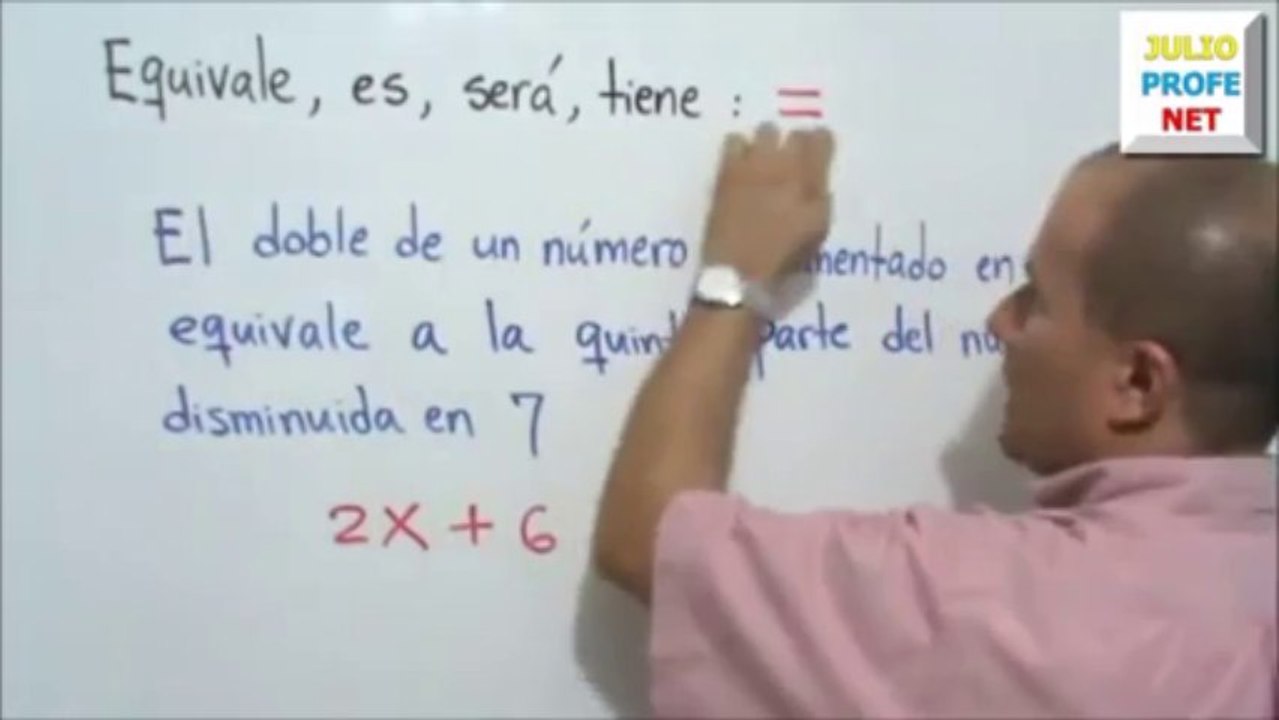 Equivale, es, será, tiene : =
El doble de un número mentado en
equivale a la quin parte del nú
disminuida en 7
2X + 6
JULIO
PROFE
NET